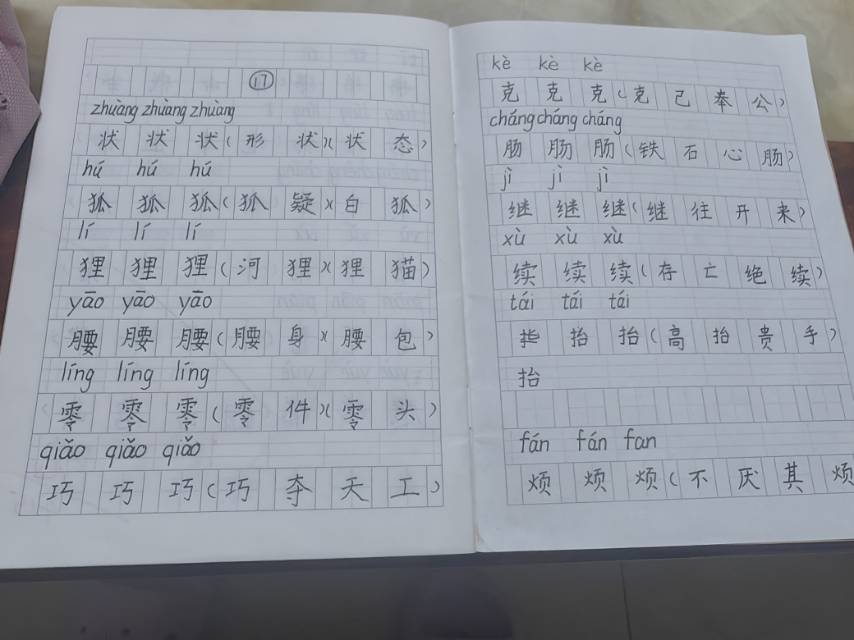 ⑰
zhuàng zhuàng zhuàng
状 状 状(形 状)(状 态)
hú hú hú
狐 狐 狐(狐 疑)(白 狐)
lí lí lí
狸 狸 狸(河 狸)(狸 猫)
yāo yāo yāo
腰 腰 腰(腰 身)(腰 包)
líng líng líng
零 零 零(零 件)(零 头)
qiǎo qiǎo qiǎo
巧 巧 巧(巧 夺 天 工)
kè kè kè
克 克 克(克 己 奉 公)
cháng cháng cháng
肠 肠 肠(铁 石 心 肠)
jì jì jì
继 继 继(继 往 开 来)
xù xù xù
续 续 续(存 亡 绝 续)
tái tái tái
抬 抬(高 抬 贵 手)
抬
fán fán fan
烦 烦 烦(不 厌 其 烦